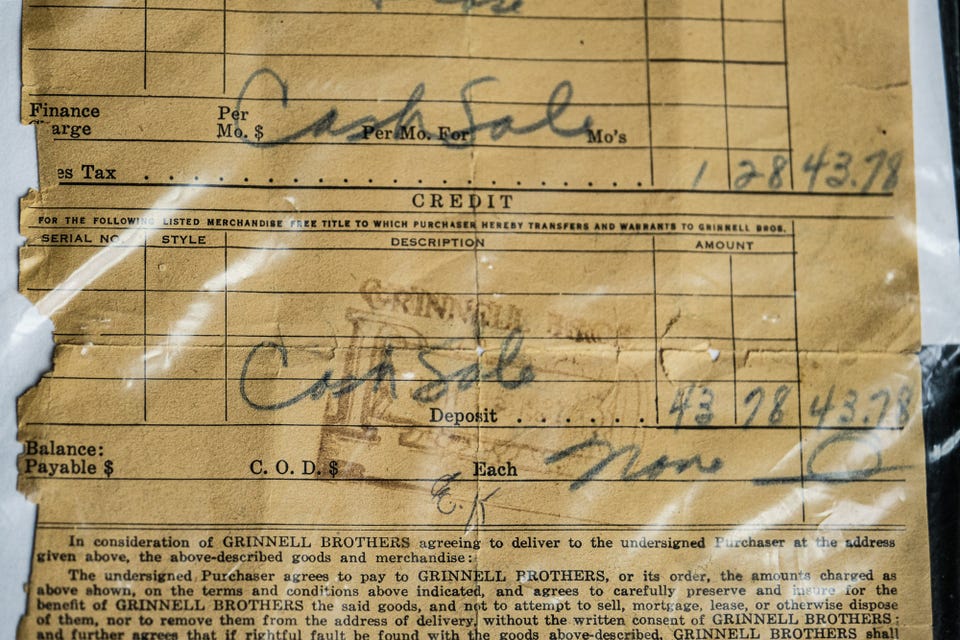 Finance Per
arge Mo. $ Cash Per Mo. For Sale Mo's
es Tax . . . . . . . . . . . . . . . . . . . . . . . . 1 28 43.78
CREDIT
FOR THE FOLLOWING LISTED MERCHANDISE FREE TITLE TO WHICH PURCHASER HEREBY TRANSFERS AND WARRANTS TO GRINNELL BROS.
SERIAL NO. STYLE DESCRIPTION AMOUNT
GRINNELL BROS
Cash Sale
Deposit . . . . . . . 43 78 43.78
Balance:
Payable $ C. O. D. $ Each None 0
E.K
In consideration of GRINNELL BROTHERS agreeing to deliver to the undersigned Purchaser at the address
given above, the above-described goods and merchandise:
The undersigned Purchaser agrees to pay to GRINNELL BROTHERS, or its order, the amounts charged as
above shown, on the terms and conditions above indicated, and agrees to carefully preserve and insure for the
benefit of GRINNELL BROTHERS the said goods, and not to attempt to sell, mortgage, lease, or otherwise dispose
of them, nor to remove them from the address of delivery, without the written consent of GRINNELL BROTHERS;
and further agrees that if rightful fault be found with the goods above-described, GRINNELL BROTHERS shall